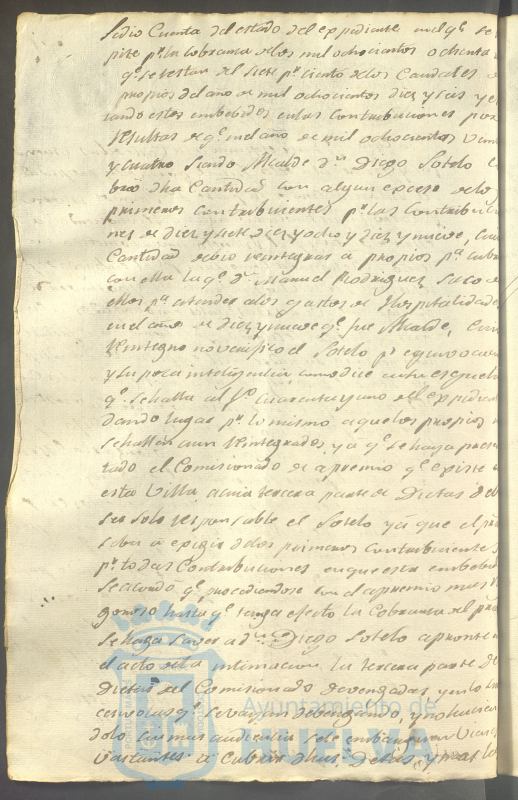 Se dio Cuenta del estado del expediente en el qe. se
pite pr. la Cobranza de los mil ochocientos ochenta
qe. se restan del siete pr. ciento de los Caudales de
propios del año de mil ochocientos diez y seis y
tando estos embebidos en las Contribuciones por
resultas de qe. en el año de mil ochocientos
y cuatro siendo Alcalde dn. Diego Sotelo
bró dha Cantidad con algun exceso de los
primeros Contribuientes pr. las Contribucio
nes de diez y siete diez y ocho y diez y nueve, cuia
Cantidad debió reintegrar a propios pa. cubrir
con ella la qe. dn. Manuel Rodriguez saco de
ellos pa. atender a los gastos de Hospitalidades
en el año de diez y nueve qe. fue Alcalde, cuio
Reintegro no verificó el Sotelo pr. equivocacion
y su poca inteligencia como dice en su esquela
qe. se halla al fo. Cuarenta y uno del expediente
dando lugar pr. lo mismo a que los propios no
se hallen aun Reintegrados y a qe. se haya presen
tado el Comisionado de apremio qe. existe en
esta Villa a cuia tercera parte de Dietas debe
ser solo responsable el Sotelo ya que el
sobra a exigir de los primeros Contribuientes
pr. todas Contribuciones en que esta embebida
Se acordó qe. procediendose con el apremio mas ri
goroso hasta qe. tenga efecto la Cobranza del
se haga saver a dn. Diego Sotelo apronte en
el acto de la intimacion la tercera parte de
Dietas del Comisionado devengadas y en lo
qe. se vayan debengando, y no hacien
dolo sin mas audiencia se le embarguen Vienes
vastantes a cubrir dhas. Dietas, y mas
Ayuntamiento de
HUELVA